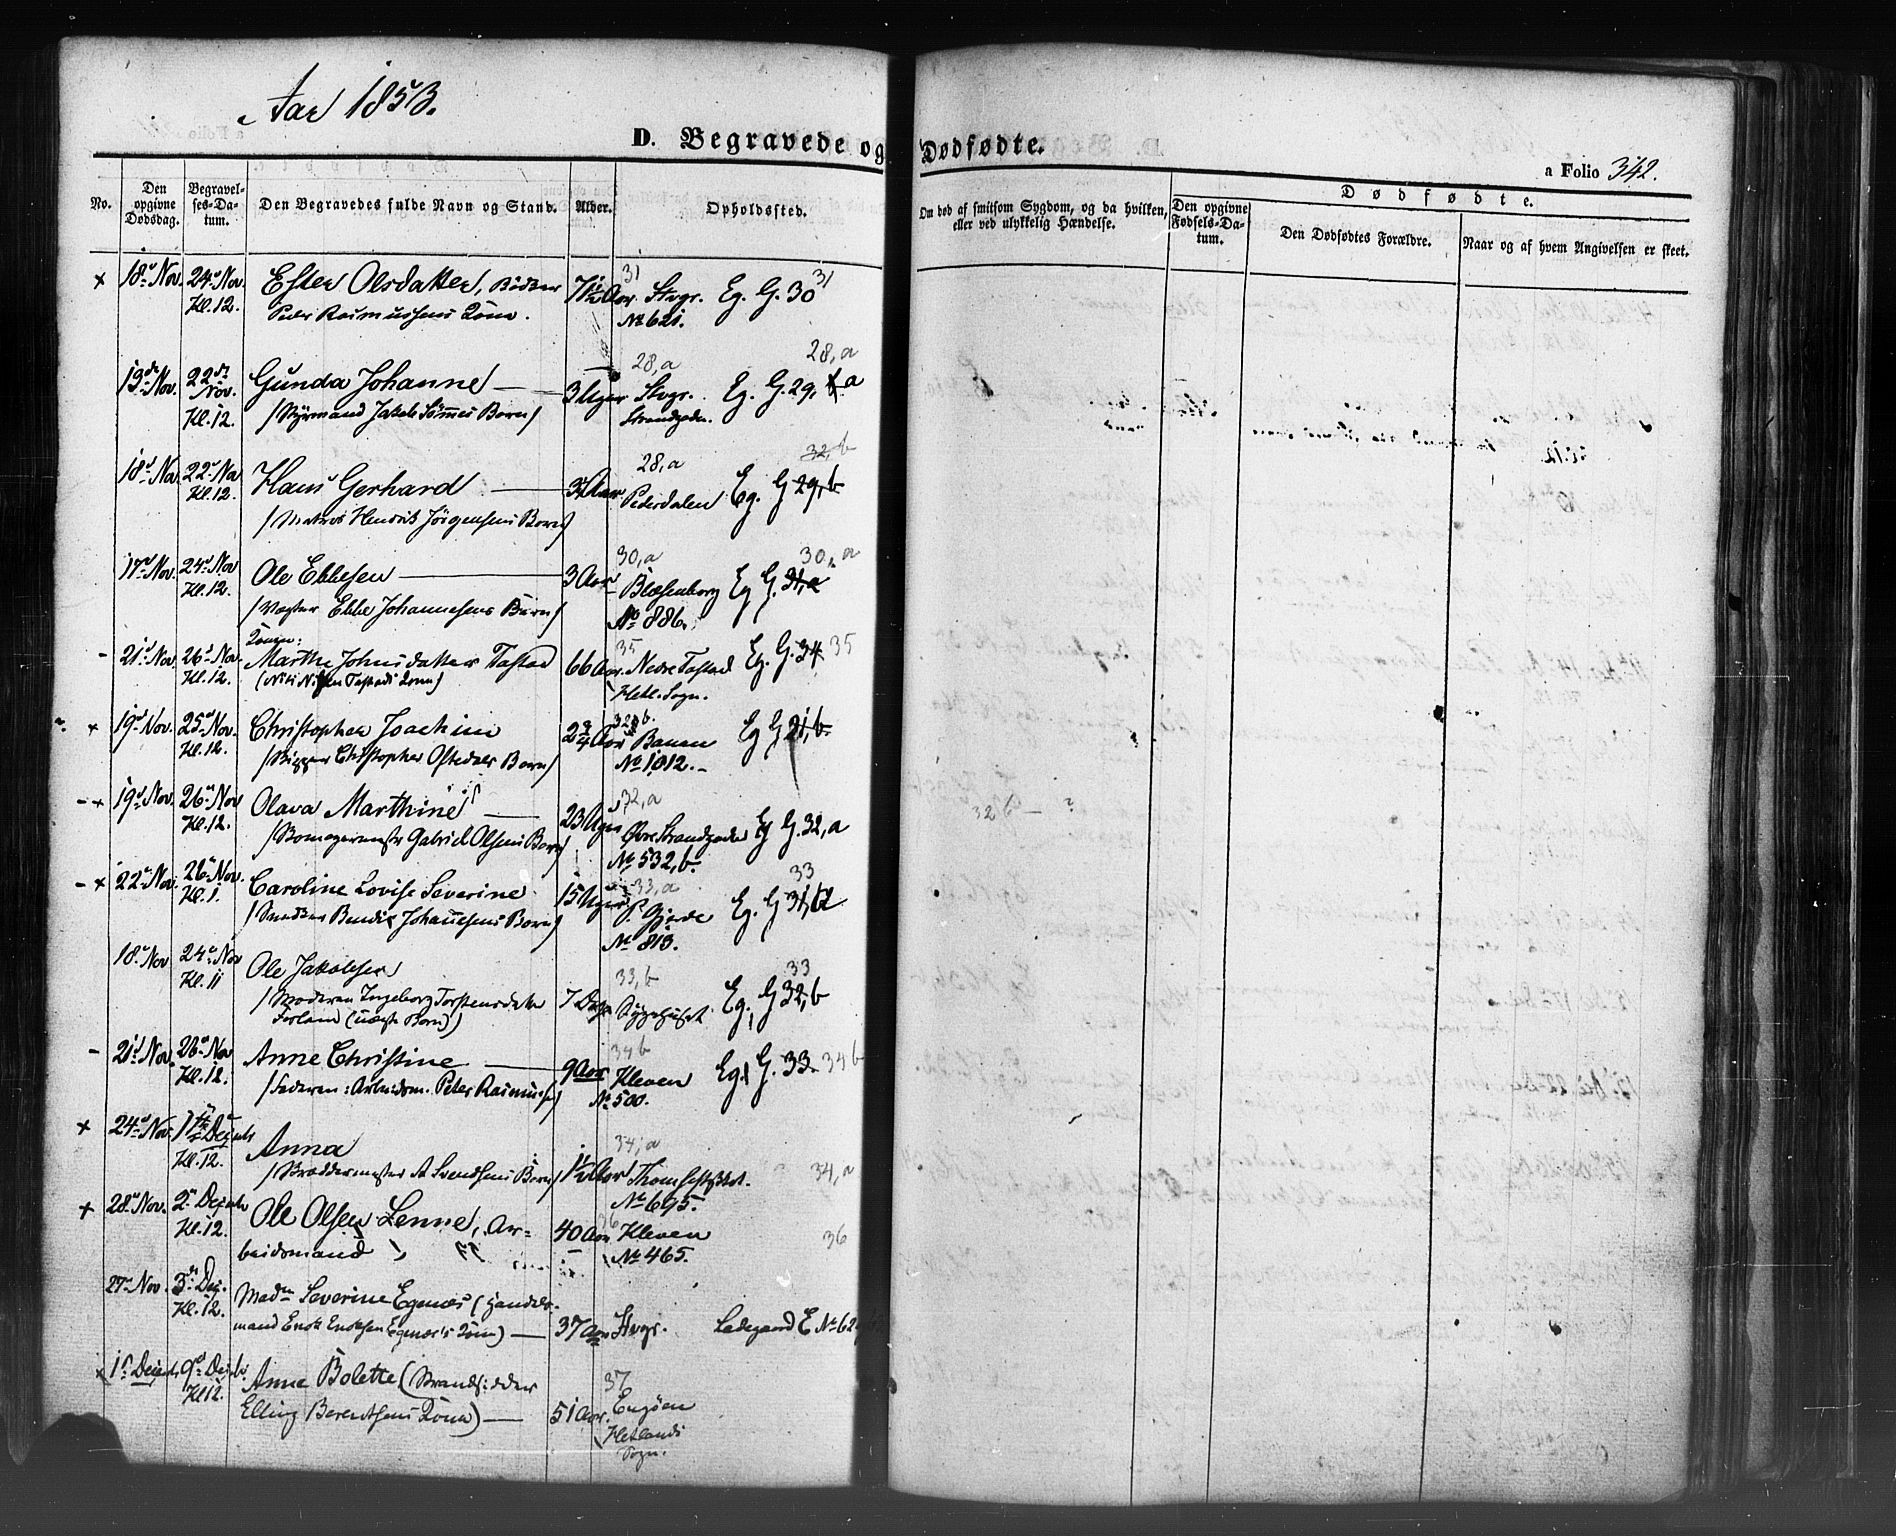 Aar 1853.
D. Begravede og Dødfødte.
a Folio 342.
No.
Den opgivne Dødsdag.
Begravelses-Datum.
Den Begravedes fulde Navn og Stand.
Alder.
Opholdssted.
Om død af smitsom Sygdom, og da hvilken, eller ved ulykkelig Hændelse.
Dødfødte.
Den opgivne Fødsels-Datum.
Den Dødfødtes Forældre.
Naar og af hvem Angivelsen er skeet.
31 31
+ 18. Nov. 24. Nov. Ester Olsdatter, Bødker 71½ Aar. Stvgr. Eg. G. 30
Kl. 12. Peder Rasmussens Kone. No 621.
28, a 28, a
13de Nov. 22de Nov. Gunda Johanne — 3 Uger Stvgr. Eg. G. 29, a
Kl. 12. /Styrmand Jakob Sømmes Barn/ Strandgaden.
28, a 32, b
18. Nov. 22. Nov Hans Gerhard — Aar Pedersdalen Eg. G 29, b
Kl. 12. /Matros Henrik Jörgensens Barn/
30, a 30, a
17. Nov. 24. Nov Ole Ebbesen — 3 Aar Blæsenborg Eg G. 31, a
Kl. 12. /Vægter Ebbe Johannesens Barn/ No 886.
Konen: 35
- 21. Nov. 26. Nov. Marthe Johnsdatter Tastad 66 Aar. Nedre Tastad Eg. G. 34 35
Kl. 12. (Nils Tastads Kone) Hetl. Sogn.
32, b.
+ 19. Nov. 25. Nov. Christopher Joachim 2¾ Aar Banen Eg G 21, b.
Kl. 12. /Rigger Christopher Oftedals Barn/ No 1012.
32, a
- + 19. Nov. 26. Nov Olava Marthine — 23 Uger Øvre Strandgade Eg G. 32, a 32 b - ?
Kl. 12. Gabriel Olsens Barn/ No 532, b.
33, a 33
- + 22. Nov. 26. Nov. Caroline Lovise Severine 15 Uger Gjerde Eg. G 31,
Kl. 1. /Snedker Bendix Johannesens Barn/ No 813.
33, b 33
18. Nov 24. Nov Ole Jakobsen 7 Dage Sygehuset. Eg. G 32, b
Kl. 11 /Moderen Ingeborg Torstensdatter
(uægte Barn)/
34 b
- 21. Nov. 26. Nov Anne Christine — 9 Aar Kleven Eg. G. 33. 34 b
Kl. 12. /Faderen: Arbeidsm. Peter Rasmussen/ No 500.
34, a
+ 24. Nov. 1ste Decemb Anna 1½ Aar Thomsestykket. 34, a
Kl. 12. A Svendsens Barn/ No 695.
36
+ 28. Nov. 2. Decemb Ole Olsen Lenne, Ar= 40 Aar Kleven 36
Kl. 12. beidsmand No 465.
27. Nov. 3de Dec. Madm Severine Egenæs (Handels-
Kl. 12. mand Enok Enoksen Egenæs's Kone) — 37 Aar Stvgr. Ladegaard E No 62
37
+ 1. Decemb. 9. Decb. Anne Bolette (Strandsidder
Kl 12. Elling Berentsens Kone) — 51 Aar. Engøen
Hetlands
Sogn.